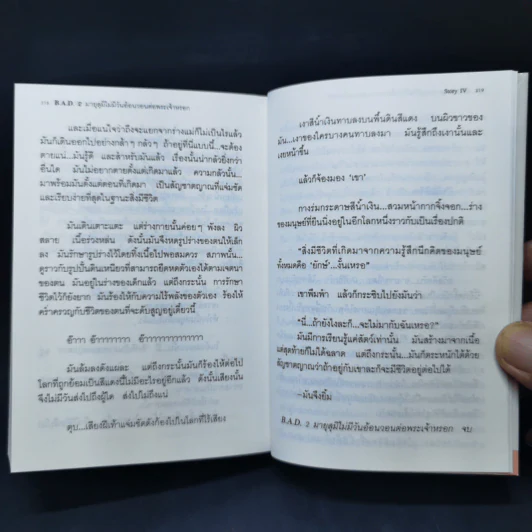 218 B.A.D. 2 มายุสุมิไม่มีวันอ้อนวอนต่อพระเจ้าหรอก
และเมื่อแน่ใจว่าถึงจะแยกจากร่างแม่ก็ไม่เป็นไรแล้ว
มันก็เดินออกไปอย่างกล้าๆ กลัวๆ ถ้าอยู่ที่นี่แบบนี้...จะต้อง
ตายแน่...มันรู้ดี และสำหรับมันแล้ว เรื่องนั้นน่ากลัวยิ่งกว่า
อื่นใด มันไม่อยากตายตั้งแต่เกิดมาแล้ว ความกลัวนั้น...
มาพร้อมมันตั้งแต่ตอนที่เกิดมา เป็นสัญชาตญาณที่แจ่มชัด
และเรียบง่ายที่สุดในฐานะสิ่งมีชีวิต
มันเดินเตาะแตะ แต่ร่างกายนั้นค่อยๆ พังลง ผิว
สลาย เนื้อร่วงหล่น ดังนั้นมันจึงหดรูปร่างของตนให้เล็ก
ลง มันรักษารูปร่างไว้โดยทิ้งเนื้อไปพอสมควร สภาพนั้น...
ดูราวกับรูปปั้นดินเหนียวที่สามารถยืดหดตัวเองได้ตามเจตนา
ของตน มันอยู่ในร่างของเด็กแล้ว แต่ถึงกระนั้น การรักษา
ชีวิตไว้ก็ยังยาก มันร้องไห้กับความไร้พลังของตัวเอง ร้องไห้
คร่ำครวญกับชีวิตของตนที่จะดับสูญอยู่เดี๋ยวนี้
อ๊าาา อ๊าาาาาาาา อ๊าาาาาาาาาาาาาา
มันล้มลงดังแผละ แต่ถึงกระนั้นมันก็ร้องไห้ต่อไป
โลกที่ถูกย้อมเป็นสีแดงนี้ไม่มีอะไรอยู่อีกแล้ว ดังนั้นเสียงนั้น
จึงไม่มีวันส่งไปถึงผู้ใด ส่งไปไม่ถึงแน่
ตุบ...เสียงฝีเท้าแจ่มชัดดังก้องไปในโลกที่ไร้เสียง
Story IV 219
เงาสีน้ำเงินทาบลงบนพื้นดินสีแดง บนผิวขาวของ
มัน...เงาของใครบางคนทาบลงมา มันรู้สึกถึงเงานั้นและ
เงยหน้าขึ้น
แล้วก็จ้องมอง 'เขา'
กางร่มกระดาษสีน้ำเงิน...สวมหน้ากากจิ้งจอก...ร่าง
ของมนุษย์ที่ยืนนิ่งอยู่ในอีกโลกหนึ่งราวกับเป็นเรื่องปกติ
"สิ่งมีชีวิตที่เกิดมาจากความรู้สึกนึกคิดของมนุษย์
ทั้งหมดคือ 'ยักษ์'...งั้นเหรอ"
เขาพึมพำ แล้วก็กระซิบไปยังมันว่า
"นี่...ถ้ายังไงละก็...จะไม่มากับฉันเหรอ?"
มันมีการเรียนรู้แค่สัตว์เท่านั้น มันสร้างมาจากเนื้อ
แต่สุดท้ายก็ไม่ได้ฉลาด แต่ถึงกระนั้น...มันก็ตระหนักได้ด้วย
สัญชาตญาณว่าถ้าอยู่กับเขาละก็จะมีชีวิตอยู่ต่อไปได้
–มันจึงยิ้ม
B.A.D. 2 มายุสุมิไม่มีวันอ้อนวอนต่อพระเจ้าหรอก จบ